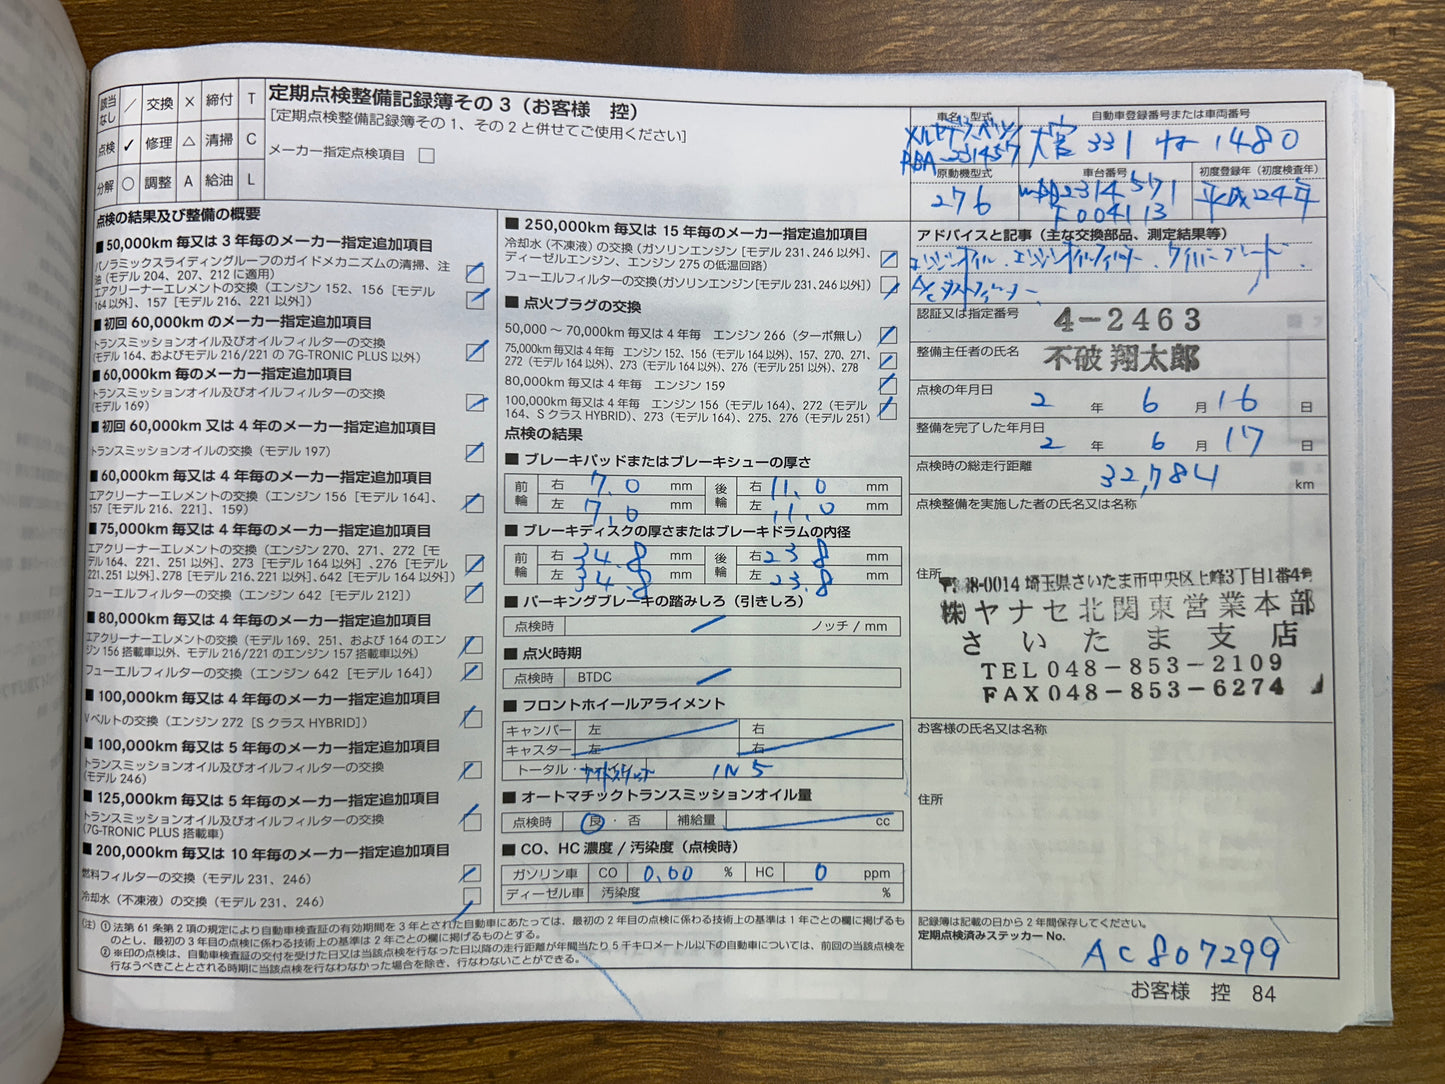 該当なし ／ 交換 × 締付 T
点検 ✓ 修理 △ 清掃 C
分解 ○ 調整 A 給油 L
定期点検整備記録簿その3（お客様 控）
[定期点検整備記録簿その1、その2と併せてご使用ください]
メーカー指定点検項目 □
点検の結果及び整備の概要
■50,000km 毎又は 3 年毎のメーカー指定追加項目
パノラミックスライディングルーフのガイドメカニズムの清掃、注
油（モデル 204、207、212 に適用）
エアクリーナーエレメントの交換（エンジン 152、156［モデル
164 以外］、157［モデル 216、221 以外］）
■初回 60,000km のメーカー指定追加項目
トランスミッションオイル及びオイルフィルターの交換
（モデル 164、およびモデル 216/221 の 7G-TRONIC PLUS 以外）
■60,000km 毎のメーカー指定追加項目
トランスミッションオイル及びオイルフィルターの交換
（モデル 169）
■初回 60,000km 又は 4 年毎のメーカー指定追加項目
トランスミッションオイルの交換（モデル 197）
■60,000km 毎又は 4 年毎のメーカー指定追加項目
エアクリーナーエレメントの交換（エンジン 156［モデル 164］、
157［モデル 216、221］、159）
■75,000km 毎又は 4 年毎のメーカー指定追加項目
エアクリーナーエレメントの交換（エンジン 270、271、272［モ
デル 164、221、251 以外］、273［モデル 164 以外］、276［モデル
221、251 以外］、278［モデル 216、221 以外］、642［モデル 164 以外］）
フューエルフィルターの交換（エンジン 642［モデル 212］）
■80,000km 毎又は 4 年毎のメーカー指定追加項目
エアクリーナーエレメントの交換（モデル 169、251、および 164 のエン
ジン 156 搭載車以外、モデル 216/221 のエンジン 157 搭載車以外）
フューエルフィルターの交換（エンジン 642［モデル 164］）
■100,000km 毎又は 4 年毎のメーカー指定追加項目
Vベルトの交換（エンジン 272［S クラス HYBRID］）
■100,000km 毎又は 5 年毎のメーカー指定追加項目
トランスミッションオイル及びオイルフィルターの交換
（モデル 246）
■125,000km 毎又は 5 年毎のメーカー指定追加項目
トランスミッションオイル及びオイルフィルターの交換
（7G-TRONIC PLUS 搭載車）
■200,000km 毎又は 10 年毎のメーカー指定追加項目
燃料フィルターの交換（モデル 231、246）
冷却水（不凍液）の交換（モデル 231、246）
■250,000km 毎又は 15 年毎のメーカー指定追加項目
冷却水（不凍液）の交換（ガソリンエンジン［モデル 231、246 以外］、
ディーゼルエンジン、エンジン 275 の低温回路）
フューエルフィルターの交換（ガソリンエンジン［モデル 231、246 以外］）
■点火プラグの交換
50,000 ～ 70,000km 毎又は 4 年毎 エンジン 266（ターボ無し）
75,000km 毎又は 4 年毎 エンジン 152、156（モデル 164 以外）、157、270、271、
272（モデル 164 以外）、273（モデル 164 以外）、276（モデル 251 以外）、278
80,000km 毎又は 4 年毎 エンジン 159
100,000km 毎又は 4 年毎 エンジン 156（モデル 164）、272（モデル
164、S クラス HYBRID）、273（モデル 164）、275、276（モデル 251）
点検の結果
■ブレーキパッドまたはブレーキシューの厚さ
前輪 右 7.0 mm 後輪 右 11.0 mm
左 7.0 mm 左 11.0 mm
■ブレーキディスクの厚さまたはブレーキドラムの内径
前輪 右 34.8 mm 後輪 右 23.8 mm
左 34.8 mm 左 23.8 mm
■パーキングブレーキの踏みしろ（引きしろ）
点検時 ノッチ / mm
■点火時期
点検時 BTDC
■フロントホイールアライメント
キャンバー 左 右
キャスター 左 右
トータル・ サイドスリップ IN 5
■オートマチックトランスミッションオイル量
点検時 良・否 補給量 cc
■CO、HC 濃度 / 汚染度（点検時）
ガソリン車 CO 0.00 % HC 0 ppm
ディーゼル車 汚染度 %
（注）①法第 61 条第 2 項の規定により自動車検査証の有効期間を 3 年とされた自動車にあたっては、最初の 2 年目の点検に係わる技術上の基準は 1 年ごとの欄に掲げるも
のとし、最初の 3 年目の点検に係わる技術上の基準は 2 年ごとの欄に掲げるものとする。
②※印の点検は、自動車検査証の交付を受けた日又は当該点検を行なった日以降の走行距離が年間当たり 5 千キロメートル以下の自動車については、前回の当該点検を
行なうべきこととされる時期に当該点検を行なわなかった場合を除き、行なわないことができる。
車名、型式 自動車登録番号または車両番号
メルセデスベンツ
RBA-231457 大宮 331 1480
原動機型式 車台番号 初度登録年（初度検査年）
276 WDD2314571 平成24年
F004113
アドバイスと記事（主な交換部品、測定結果等）
エンジンオイル、エンジンオイルフィルター、ワイパーブレード、
A/Cダストフィルター、
認証又は指定番号 4-2463
整備主任者の氏名 不破 翔太郎
点検の年月日
2 年 6 月 16 日
整備を完了した年月日
2 年 6 月 17 日
点検時の総走行距離
32,784 km
点検整備を実施した者の氏名又は名称
住所
-0014 埼玉県さいたま市中央区上峰3丁目1番4号
㈱ヤナセ北関東営業本部
さいたま支店
TEL 048-853-2109
FAX 048-853-6274
お客様の氏名又は名称
住所
記録簿は記載の日から 2 年間保存してください。
定期点検済みステッカー No.
AC807299
お客様 控 84